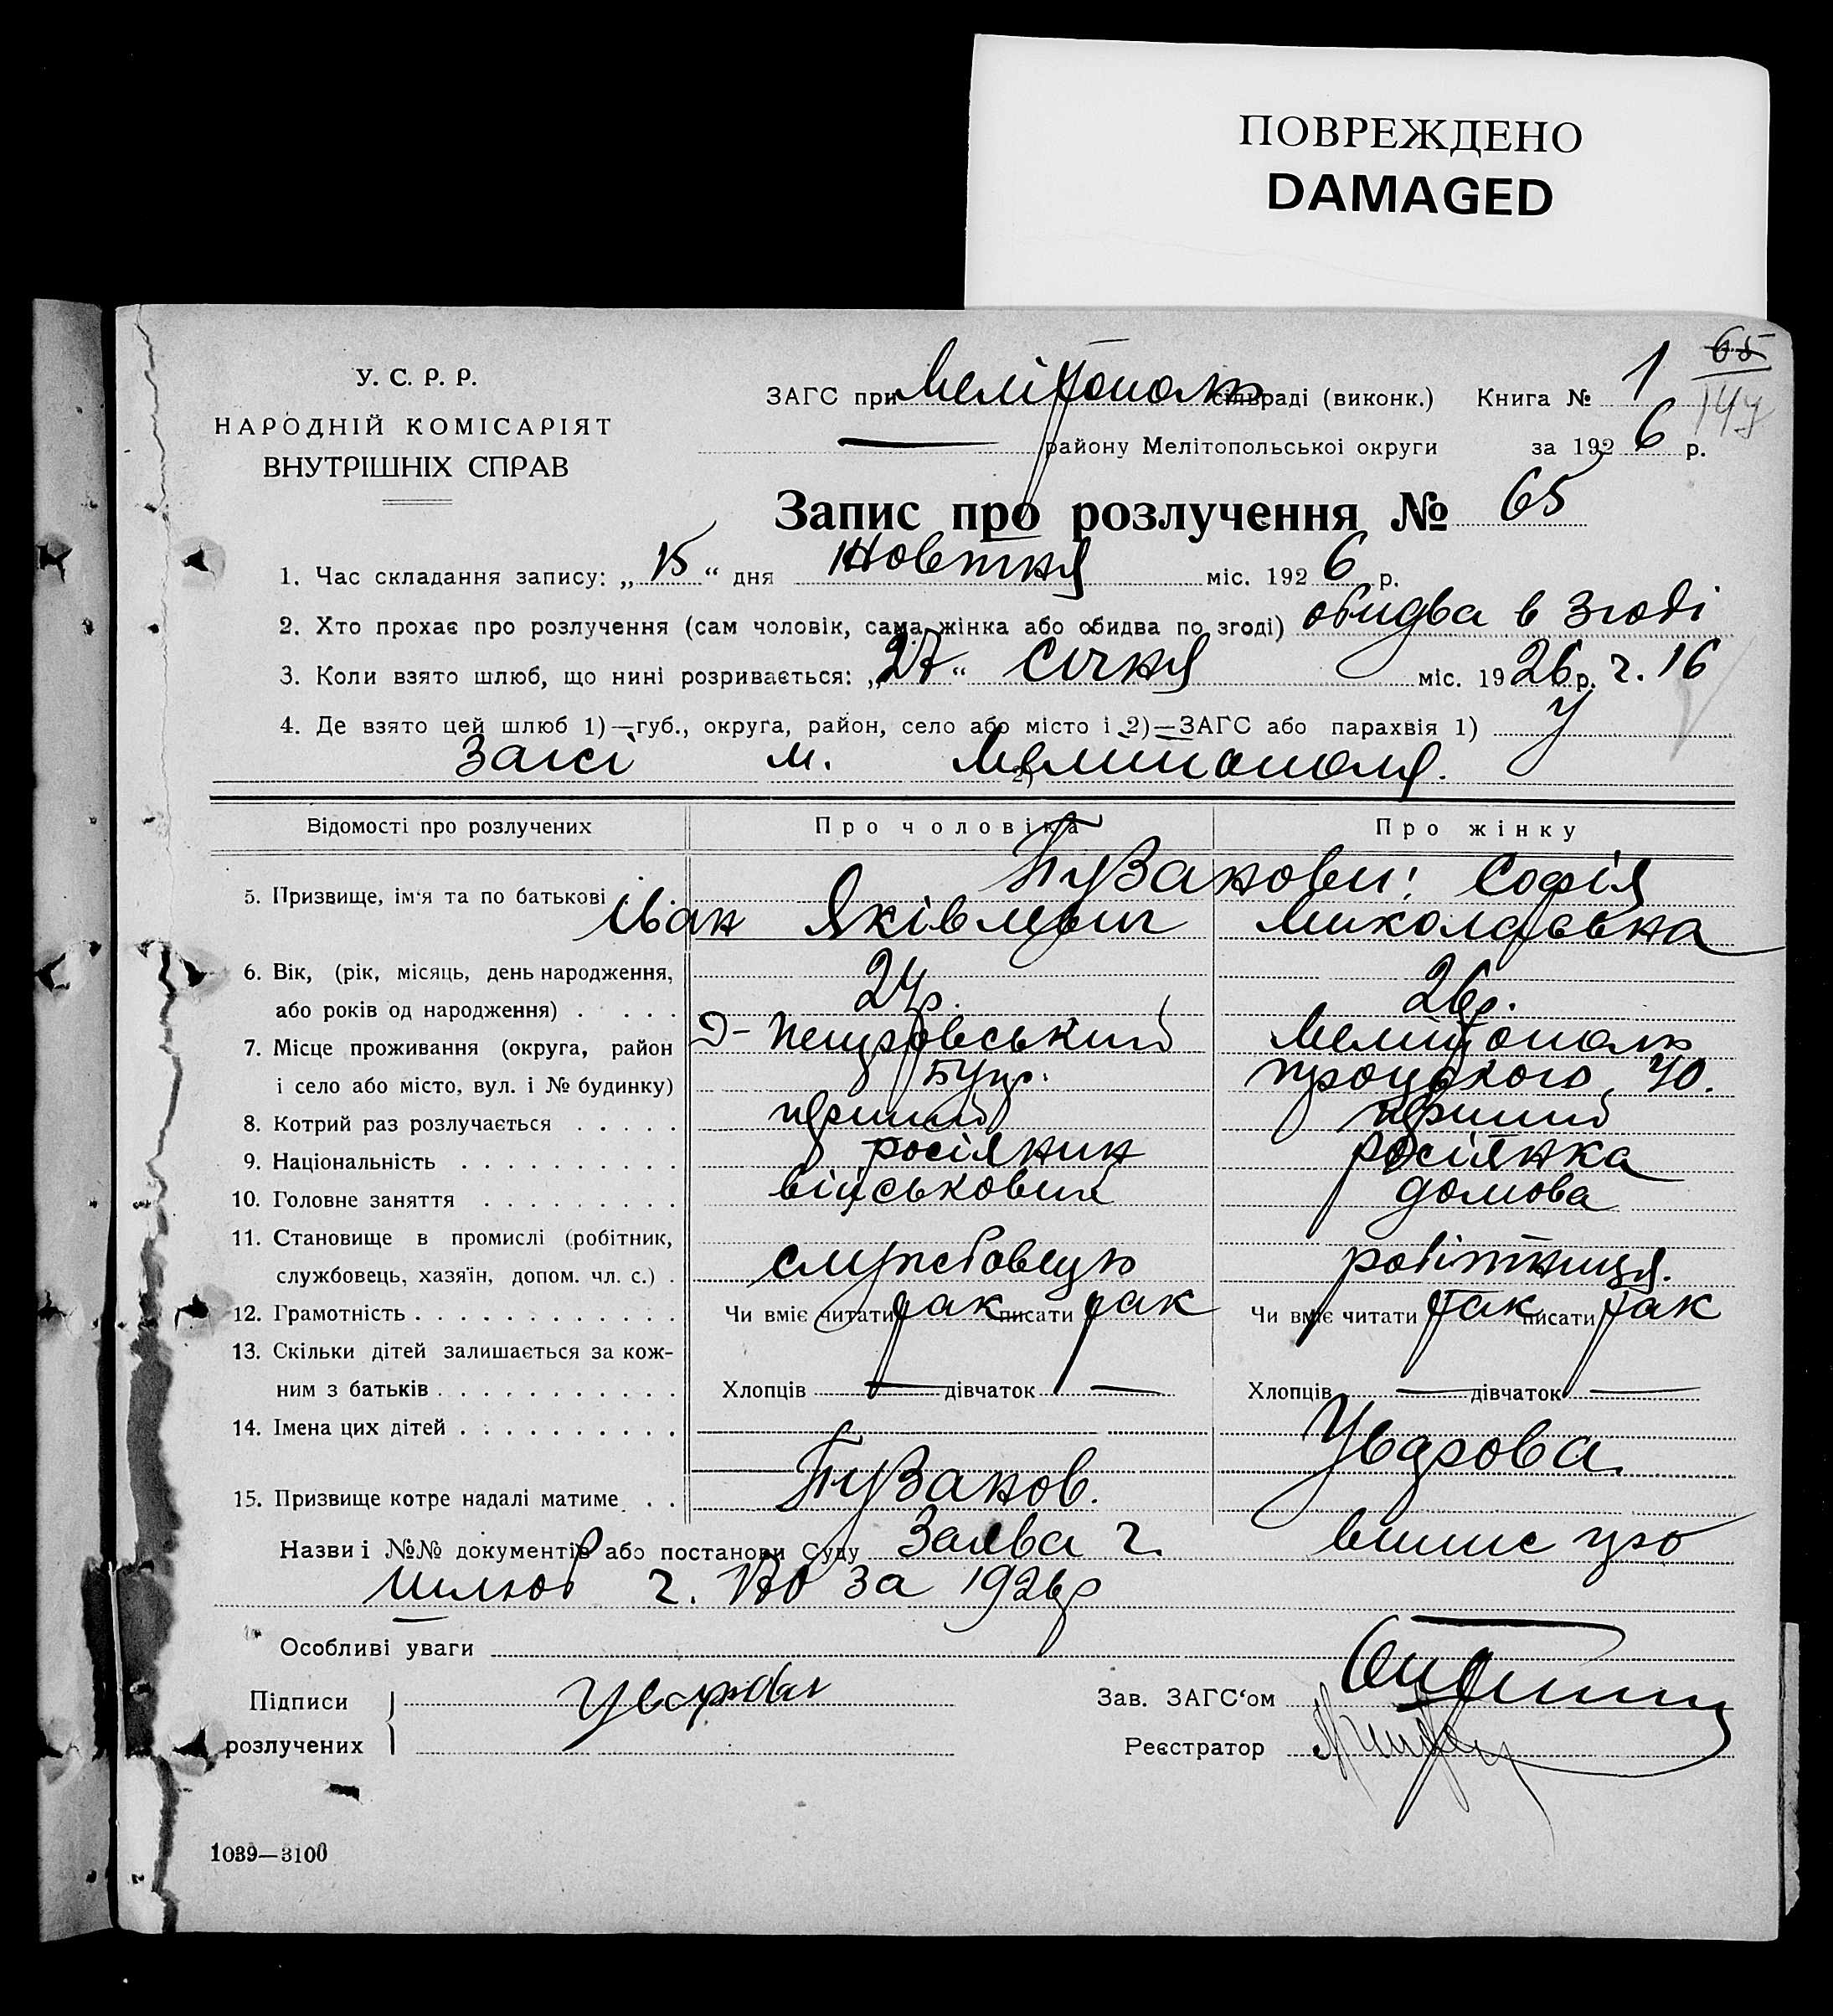 ПОВРЕЖДЕНО
DAMAGED
65
144
У. С. Р. Р.
НАРОДНІЙ КОМІСАРІЯТ
ВНУТРІШНІХ СПРАВ
ЗАГС при Мелітополь сільраді (виконк.) Книга № 1
— району Мелітопольської округи за 1926 р.
Запис про розлучення № 65
1. Час складання запису: „15“ дня Жовтня міс. 1926 р.
2. Хто прохає про розлучення (сам чоловік, сама жінка або обидва по згоді) обидва в згоді
3. Коли взято шлюб, що нині розривається: „27“ Січня міс. 1926 р. ч. 16
4. Де взято цей шлюб 1)—губ., округа, район, село або місто і 2)—ЗАГС або парахвія 1) у
Загсі м. Мелітополя.
2)
Відомості про розлучених Про чоловіка Про жінку
5. Призвище, ім‘я та по батькові Пузанови: Софія
Іван Яківлевич Миколаєвна
6. Вік, (рік, місяць, день народження,
або років од народження) 24р. 26р.
7. Місце проживання (округа, район Петровський Мелітополь
і село або місто, вул. і № будинку) Троцького, 40.
8. Котрий раз розлучається перший перший
9. Національність росіянин росіянка
10. Головне заняття військовий домова
11. Становище в промислі (робітник,
службовець, хазяїн, допом. чл. с.) службовець робітниця.
12. Грамотність Чи вміє читати так писати так Чи вміє читати так писати так
13. Скільки дітей залишається за кож-
ним з батьків Хлопців — дівчаток — Хлопців — дівчаток —
14. Імена цих дітей
15. Призвище котре надалі матиме Пузанов. Уварова.
Назви і №№ документів або постанови Суду Заява ч. випис про
шлюб ч. за 1926р
Особливі уваги
Підписи Уварова Зав. ЗАГС‘ом
розлучених Реєстратор
1039—3100